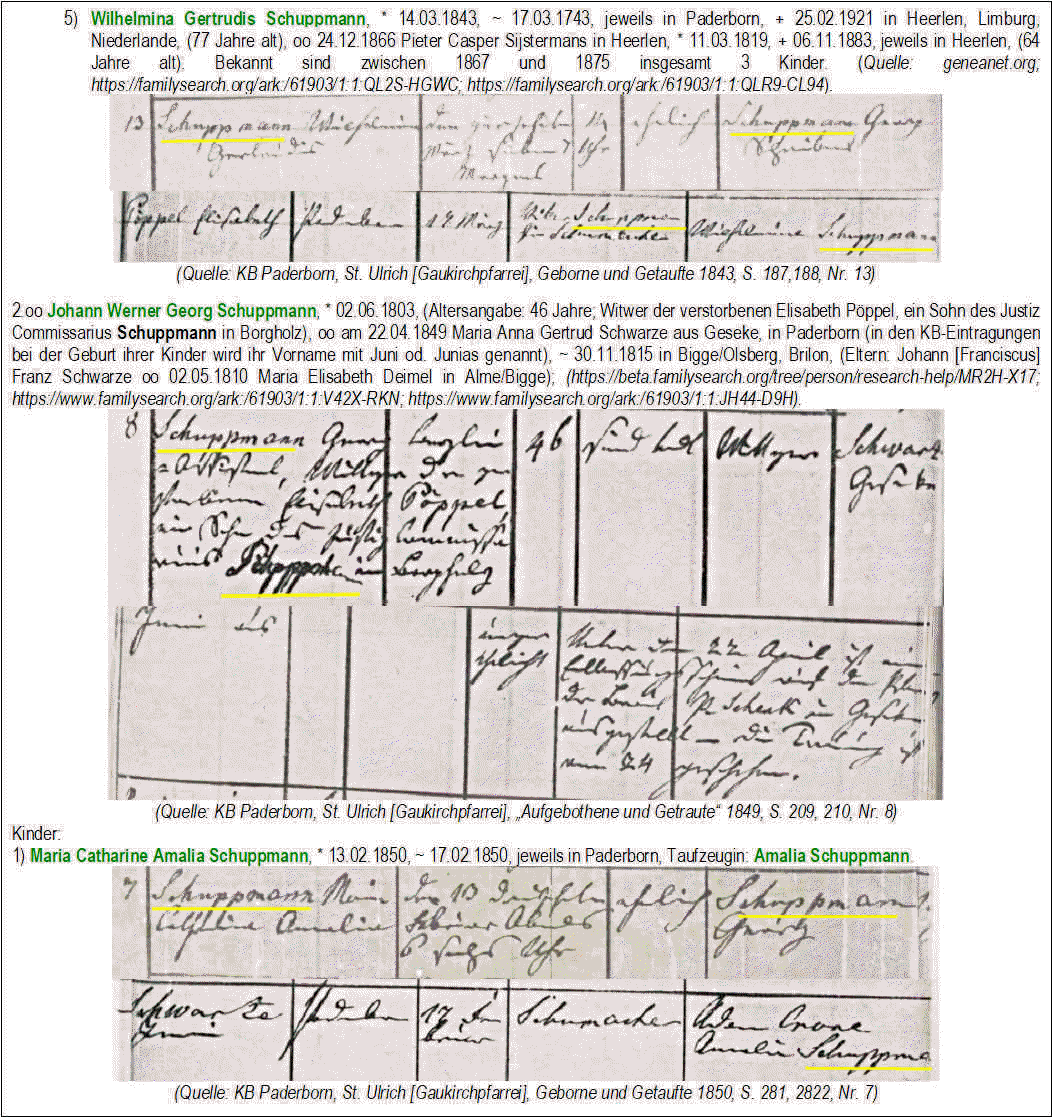 5) Wilhelmina Gertrudis Schuppmann, * 14.03.1843, ~ 17.03.1743, jeweils in Paderborn, + 25.02.1921 in Heerlen, Limburg,
Niederlande, (77 Jahre alt), oo 24.12.1866 Pieter Casper Sijstermans in Heerlen, * 11.03.1819, + 06.11.1883, jeweils in Heerlen, (64
Jahre alt). Bekannt sind zwischen 1867 und 1875 insgesamt 3 Kinder. (Quelle: geneanet.org;
https://familysearch.org/ark:/61903/1:1:QL2S-HGWC; https://familysearch.org/ark:/61903/1:1:QLR9-CL94).
13 Schuppmann Wilhelmine den ehelich Schuppmann Georg
Gertrudis März Uhr
Morgens
Pöppel Elisabeth Paderborn 17 März Schuppmann Wilhelmine Schuppmann
(Quelle: KB Paderborn, St. Ulrich [Gaukirchpfarrei], Geborne und Getaufte 1843, S. 187,188, Nr. 13)
2.oo Johann Werner Georg Schuppmann, * 02.06.1803, (Altersangabe: 46 Jahre; Witwer der verstorbenen Elisabeth Pöppel, ein Sohn des Justiz
Commissarius Schuppmann in Borgholz), oo am 22.04.1849 Maria Anna Gertrud Schwarze aus Geseke, in Paderborn (in den KB-Eintragungen
bei der Geburt ihrer Kinder wird ihr Vorname mit Juni od. Junias genannt), ~ 30.11.1815 in Bigge/Olsberg, Brilon, (Eltern: Johann [Franciscus]
Franz Schwarze oo 02.05.1810 Maria Elisabeth Deimel in Alme/Bigge); (https://beta.familysearch.org/tree/person/research-help/MR2H-X17;
https://www.familysearch.org/ark:/61903/1:1:V42X-RKN; https://www.familysearch.org/ark:/61903/1:1:JH44-D9H).
8 Schuppmann Georg 46 Wittwer Schwarz
Assistent, Wittwer der Geseke
Elisabeth Pöppel,
ein Sohn des Justiz Commissa
rius Schuppmann in Borgholz
den 22 April ist ein
der Braut Schenk in Geseke
ausgestellt – die Trauung ist
am 24 geschehen.
(Quelle: KB Paderborn, St. Ulrich [Gaukirchpfarrei], „Aufgebothene und Getraute“ 1849, S. 209, 210, Nr. 8)
Kinder:
1) Maria Catharine Amalia Schuppmann, * 13.02.1850, ~ 17.02.1850, jeweils in Paderborn, Taufzeugin: Amalia Schuppmann.
7 Schuppmann Maria den 13 ehelich Schuppmann
Amalia Abends Georg
6 sechs Uhr
Schwarze Paderborn 17 Fe Schumacher Adam Crone
bruar Amalia Schuppma
(Quelle: KB Paderborn, St. Ulrich [Gaukirchpfarrei], Geborne und Getaufte 1850, S. 281, 2822, Nr. 7)